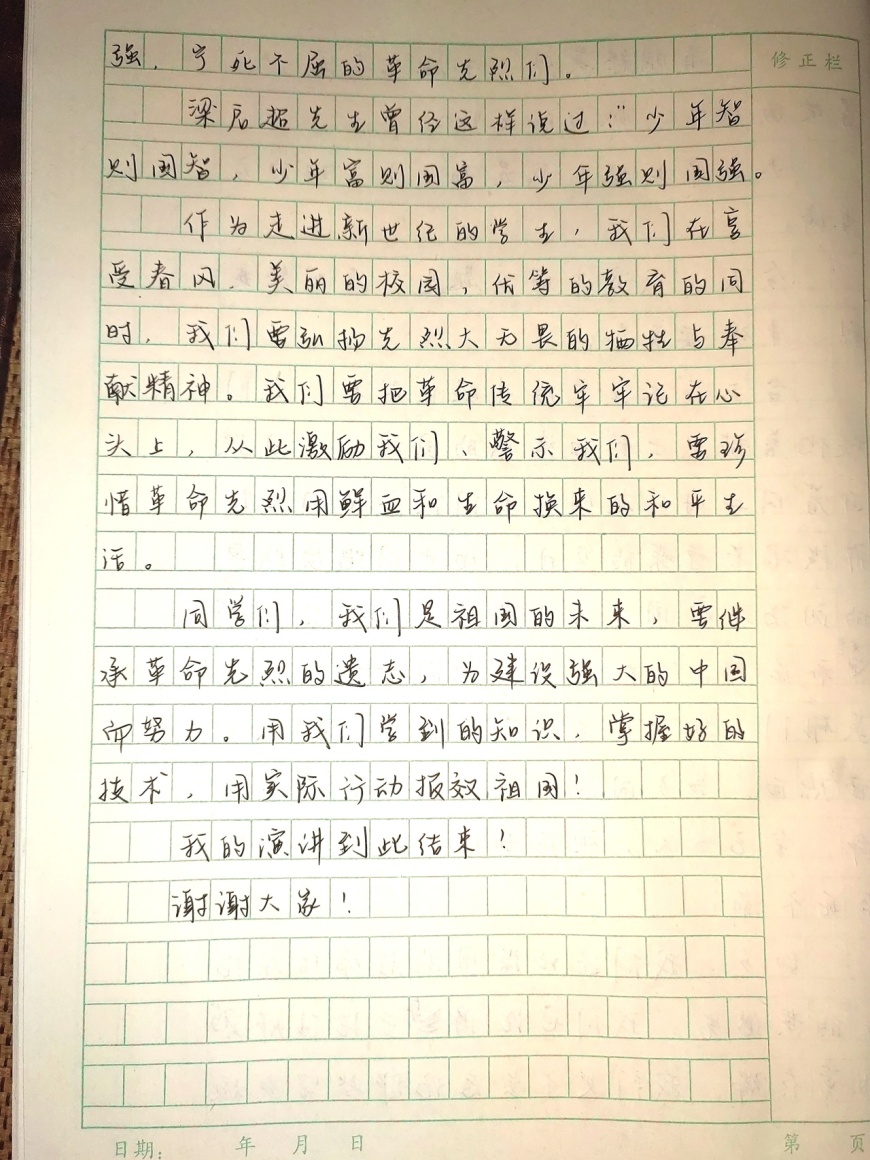 修正栏
强，宁死不屈的革命先烈们。
梁启超先生曾经这样说过："少年智
则国智，少年富则国富，少年强则国强。
作为走进新世纪的学生，我们在享
受春风、美丽的校园，优等的教育的同
时，我们要弘扬先烈大无畏的牺牲与奉
献精神。我们要把革命传统牢牢记在心
头上，从此激励我们、警示我们，要珍
惜革命先烈用鲜血和生命换来的和平生
活。
同学们，我们是祖国的未来，要继
承革命先烈的遗志，为建设强大的中国
而努力。用我们学到的知识，掌握好的
技术，用实际行动报效祖国！
我的演讲到此结束！
谢谢大家！
日期： 年 月 日 第 页